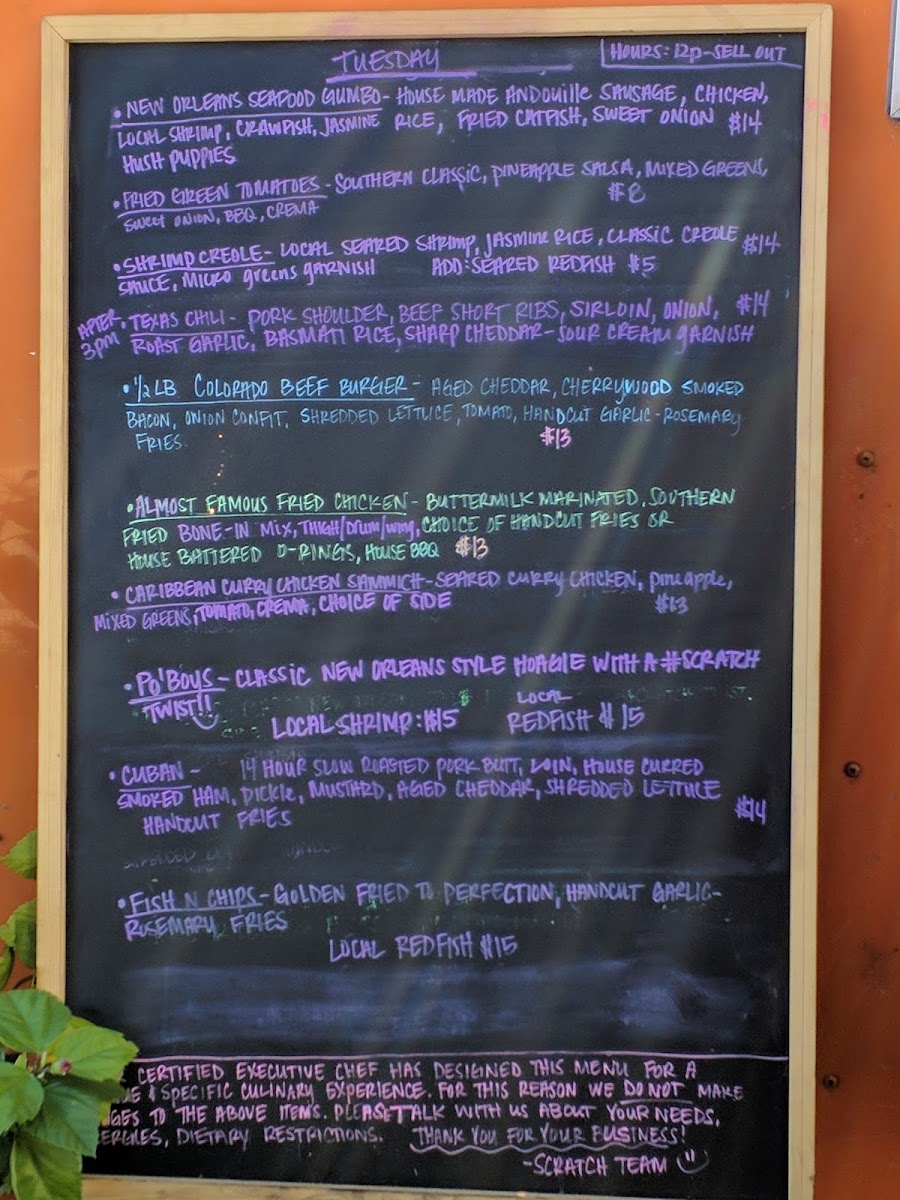 TUESDAY
HOURS: 12p-SELL OUT
• NEW ORLEANS SEAFOOD GUMBO - HOUSE MADE ANDOUILLE SAUSAGE, CHICKEN,
LOCAL SHRIMP, CRAWFISH, JASMINE RICE, FRIED CATFISH, SWEET ONION $14
HUSH PUPPIES
• FRIED GREEN TOMATOES - SOUTHERN CLASSIC, PINEAPPLE SALSA, MIXED GREENS,
SWEET ONION, BBQ, CREMA $8
• SHRIMP CREOLE - LOCAL SEARED SHRIMP, JASMINE RICE, CLASSIC CREOLE $14
SAUCE, MICRO greens GARNISH ADD: SEARED REDFISH $5
AFTER 3pm
• TEXAS CHILI - PORK SHOULDER, BEEF SHORT RIBS, SIRLOIN, ONION, $14
ROAST GARLIC, BASMATI RICE, SHARP CHEDDAR - SOUR CREAM GARNISH
• 1/2 LB COLORADO BEEF BURGER - AGED CHEDDAR, CHERRYWOOD SMOKED
BACON, ONION CONFIT, SHREDDED LETTUCE, TOMATO, HANDCUT GARLIC-ROSEMARY
FRIES. $13
• ALMOST FAMOUS FRIED CHICKEN - BUTTERMILK MARINATED, SOUTHERN
FRIED BONE-IN MIX, THIGH/DRUM/WING, CHOICE OF HANDCUT FRIES OR
HOUSE BATTERED O-RINGS, HOUSE BBQ $13
• CARIBBEAN CURRY CHICKEN SAMMICH - SEARED CURRY CHICKEN, pineapple,
MIXED GREENS, TOMATO, CREMA, CHOICE OF SIDE $13
• PO'BOYS - CLASSIC NEW ORLEANS STYLE HOAGIE WITH A #SCRATCH
TWIST!!
LOCAL SHRIMP: $15 LOCAL REDFISH $15
• CUBAN - 14 HOUR SLOW ROASTED PORK BUTT, LOIN, HOUSE CURRED
SMOKED HAM, PICKLE, MUSTARD, AGED CHEDDAR, SHREDDED LETTUCE
HANDCUT FRIES $14
• FISH N CHIPS - GOLDEN FRIED TO PERFECTION, HANDCUT GARLIC-
ROSEMARY FRIES
LOCAL REDFISH $15
CERTIFIED EXECUTIVE CHEF HAS DESIGNED THIS MENU FOR A
& SPECIFIC CULINARY EXPERIENCE. FOR THIS REASON WE DO NOT MAKE
GES TO THE ABOVE ITEMS. PLEASE TALK WITH US ABOUT YOUR NEEDS,
ERGIES, DIETARY RESTRICTIONS. THANK YOU FOR YOUR BUSINESS!
-SCRATCH TEAM